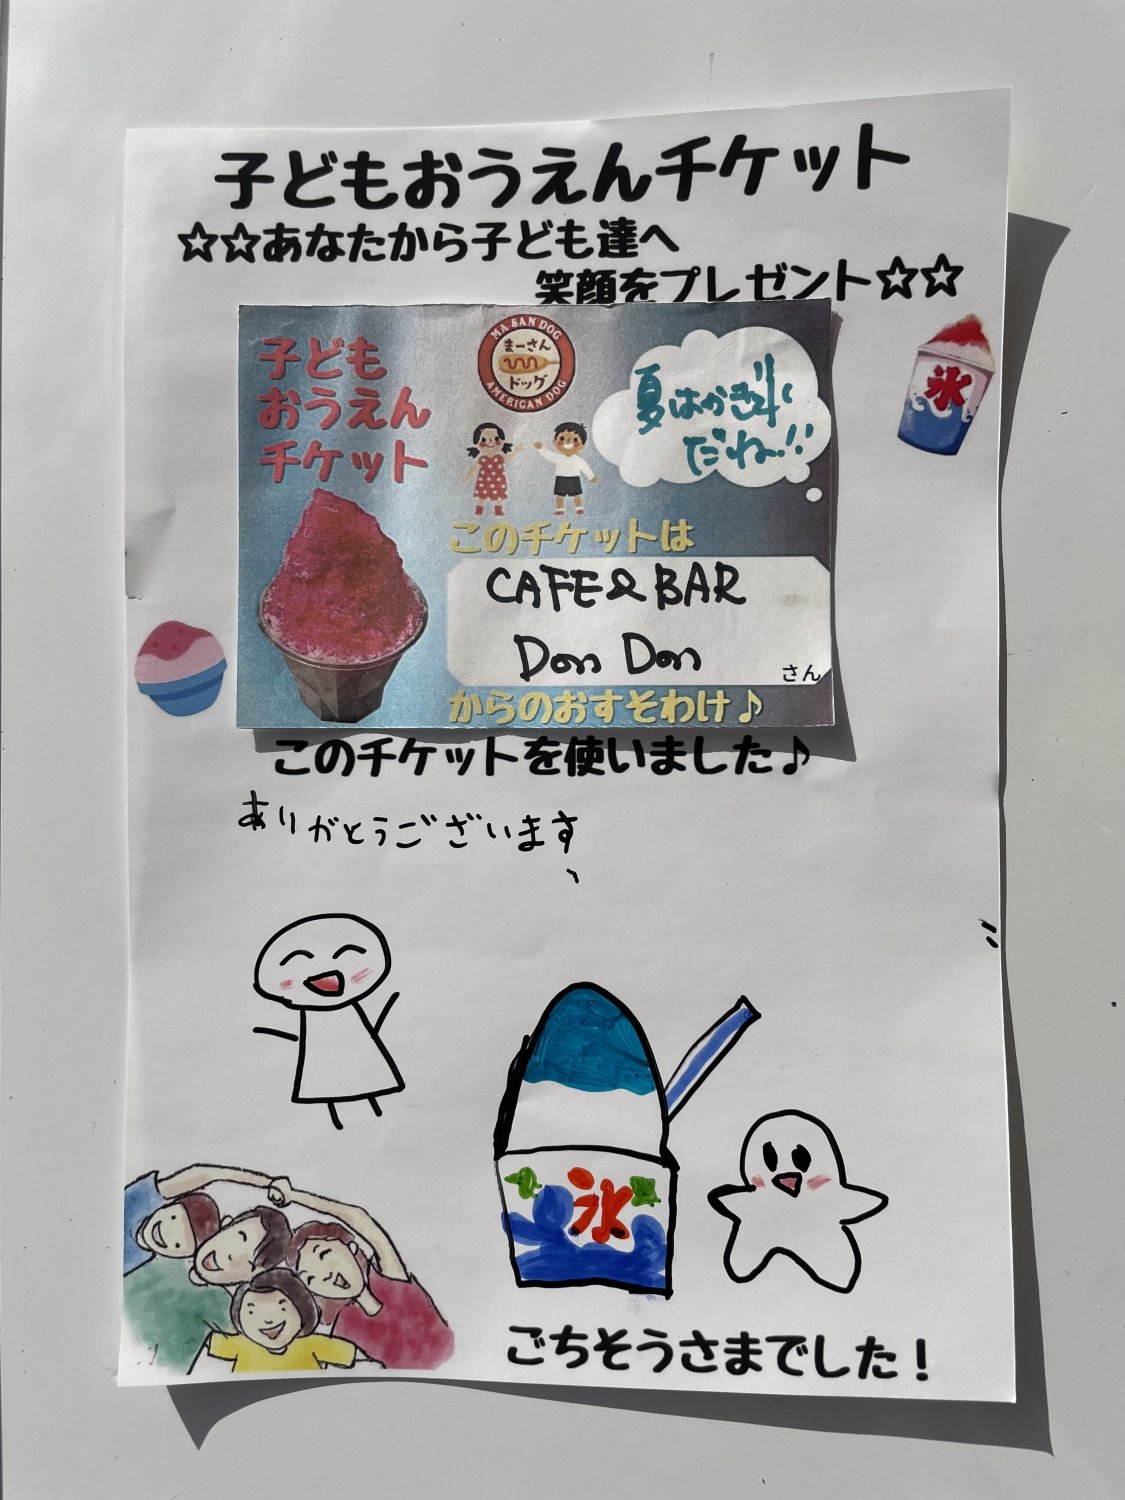 子どもおうえんチケット
☆☆あなたから子ども達へ
笑顔をプレゼント☆☆
氷
子ども
おうえん
チケット
MA-SAN DOG
まーさん
ドッグ
AMERICAN DOG
夏はかき氷
だね!!
このチケットは
CAFE&BAR
Don Don
さん
からのおすそわけ♪
このチケットを使いました♪
ありがとうございます
氷
ごちそうさまでした!